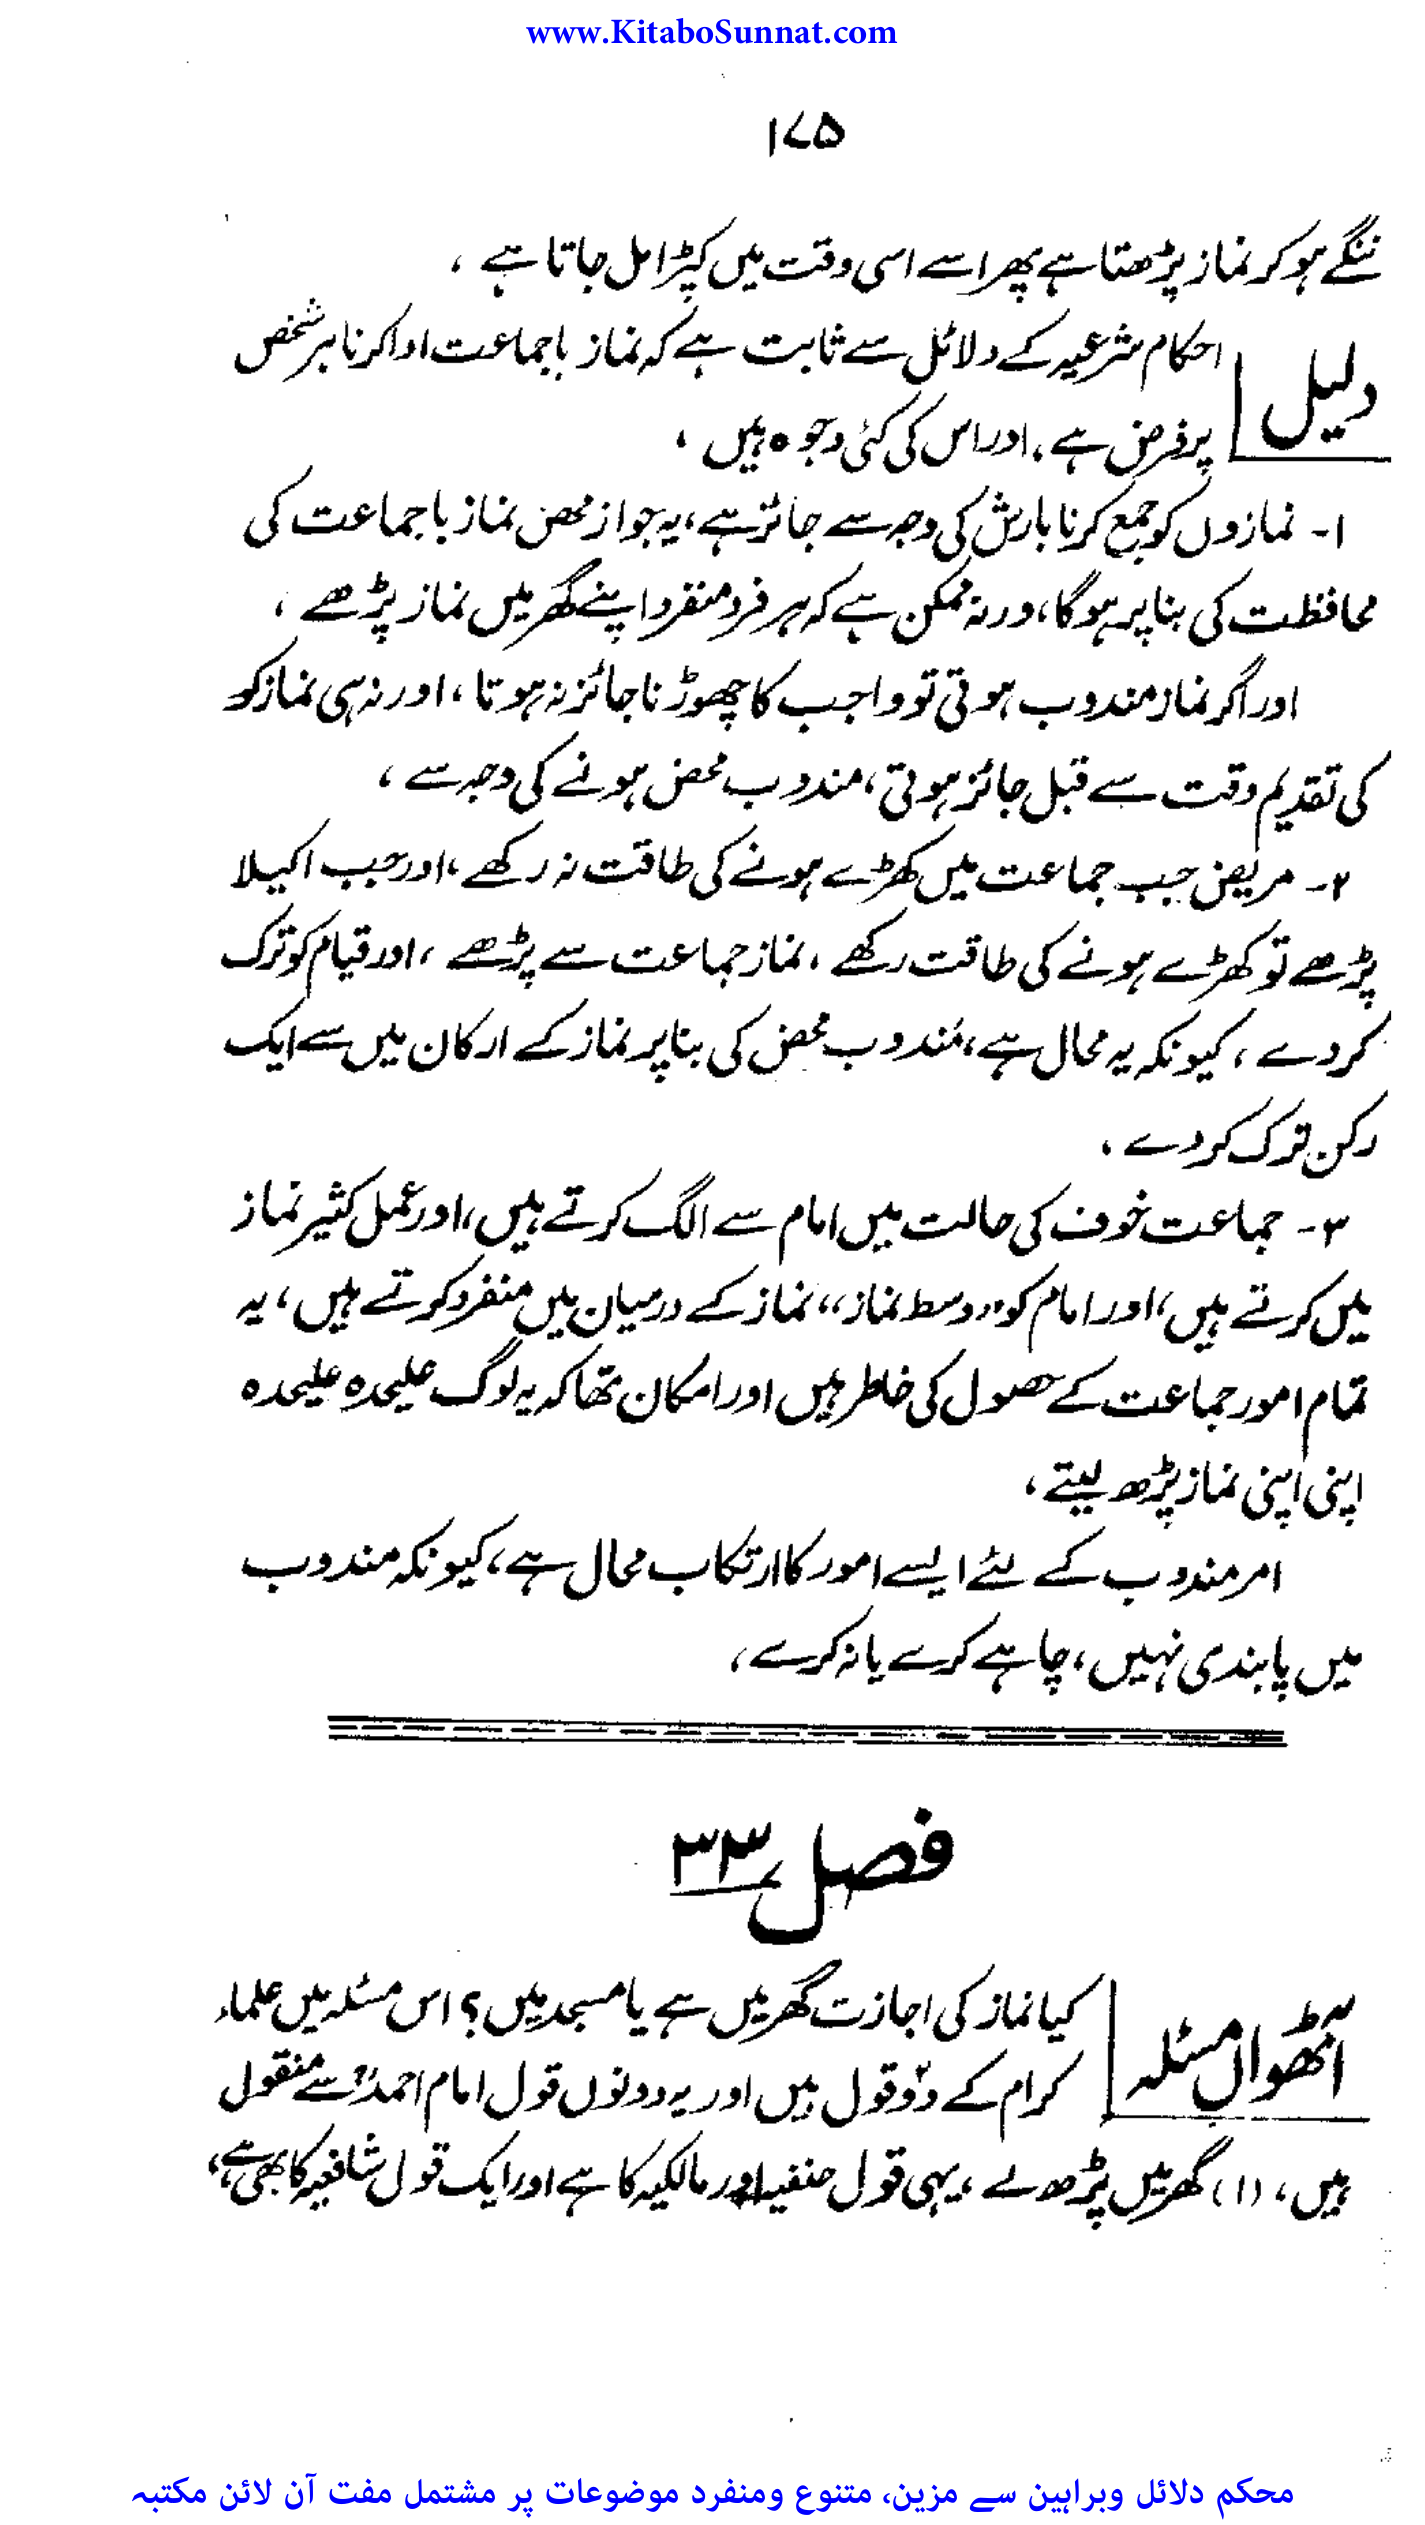 www.KitaboSunnat.com
۱۷۵
ننگے ہو کر نماز پڑھتا ہے پھر اسے اسی وقت میں کپڑا مل جاتا ہے ،
دلیل
احکام شرعیہ کے دلائل سے ثابت ہے کہ نماز باجماعت ادا کرنا ہر شخص
پر فرض ہے ، اور اس کی کئی وجوہ ہیں ،
۱۔ نمازوں کو جمع کرنا بارش کی وجہ سے جائز ہے، یہ جواز محض نماز باجماعت کی
محافظت کی بنا پر ہوگا، ورنہ ممکن ہے کہ ہر فرد منفرد اپنے گھر میں نماز پڑھے ،
اور اگر نماز مندوب ہوتی تو واجب کا چھوڑنا جائز نہ ہوتا ، اور نہ ہی نماز کو
کی تقدیم وقت سے قبل جائز ہوتی، مندوب محض ہونے کی وجہ سے ،
۲۔ مریض جب جماعت میں کھڑے ہونے کی طاقت نہ رکھے ، اور جب اکیلا
پڑھے تو کھڑے ہونے کی طاقت رکھے ، نماز جماعت سے پڑھے ، اور قیام کو ترک
کر دے ، کیونکہ یہ محال ہے، مندوب محض کی بنا پر نماز کے ارکان میں سے ایک
رکن ترک کر دے ،
۳۔ جماعت خوف کی حالت میں امام سے الگ کرتے ہیں، اور عمل کثیر نماز
میں کرتے ہیں، اور امام کو ،،وسط نماز،، نماز کے درمیان میں منفرد کرتے ہیں ، یہ
تمام امور جماعت کے حصول کی خاطر ہیں اور امکان تھا کہ یہ لوگ علیحدہ علیحدہ
اپنی اپنی نماز پڑھ لیتے ،
امر مندوب کے لئے ایسے امور کا ارتکاب محال ہے، کیونکہ مندوب
میں پابندی نہیں، چاہے کرے یا نہ کرے ،
فصل ۳۳
آٹھواں مسئلہ
کیا نماز کی اجازت گھر میں ہے یا مسجد میں؟ اس مسئلہ میں علماء
کرام کے دو قول ہیں اور یہ دونوں قول امام احمدؒ سے منقول
ہیں ، (۱) گھر میں پڑھ لے ، یہی قول حنفیہ اور مالکیہ کا ہے اور ایک قول شافعیہ کا بھی ہے،
محکم دلائل وبراہین سے مزین، متنوع ومنفرد موضوعات پر مشتمل مفت آن لائن مکتبہ